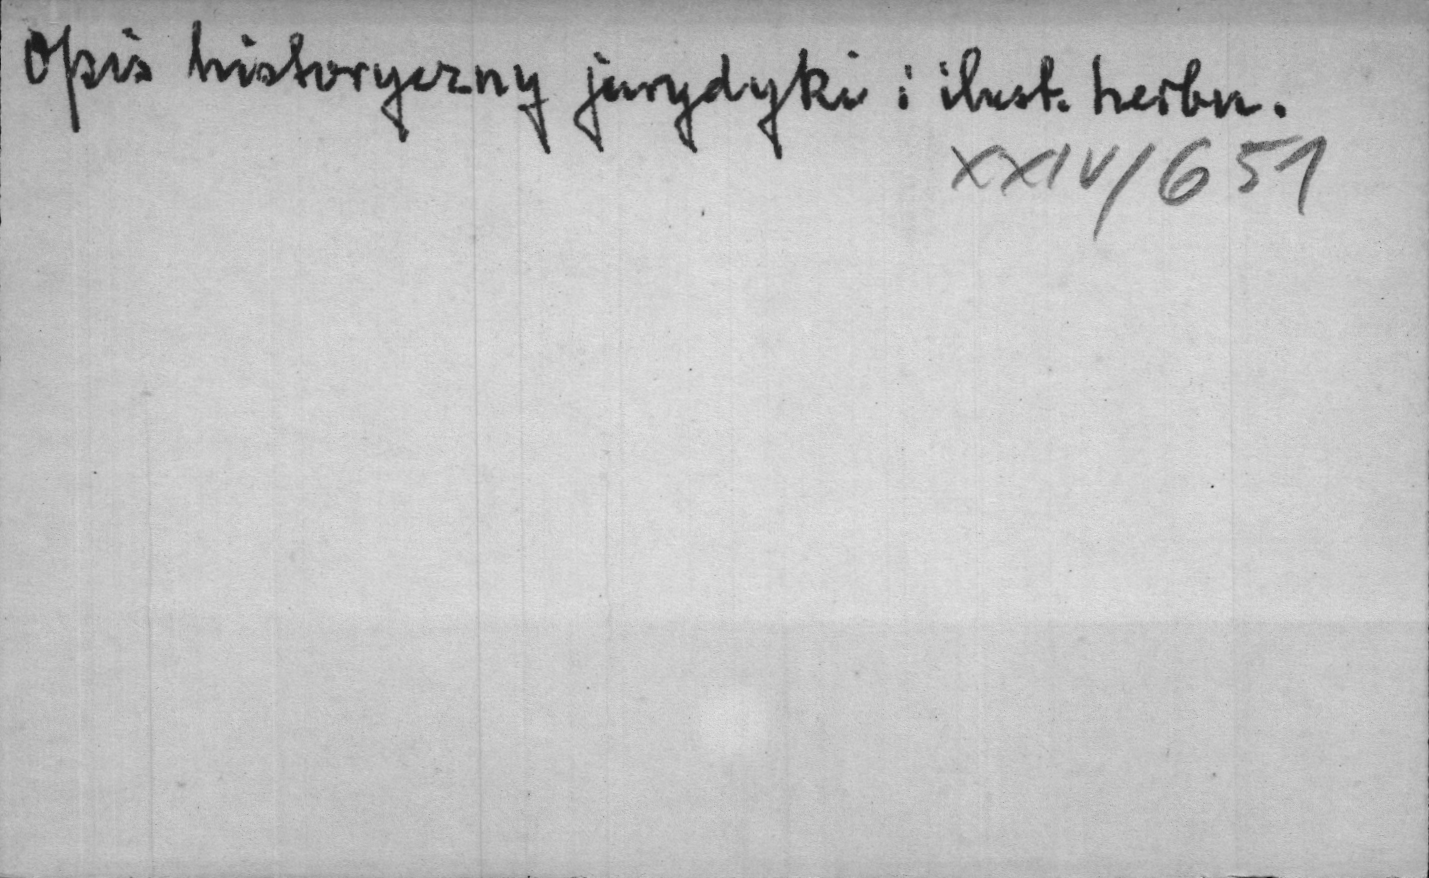 Opis historyczny jurydyki i ilust. herbu.
XXIV/651